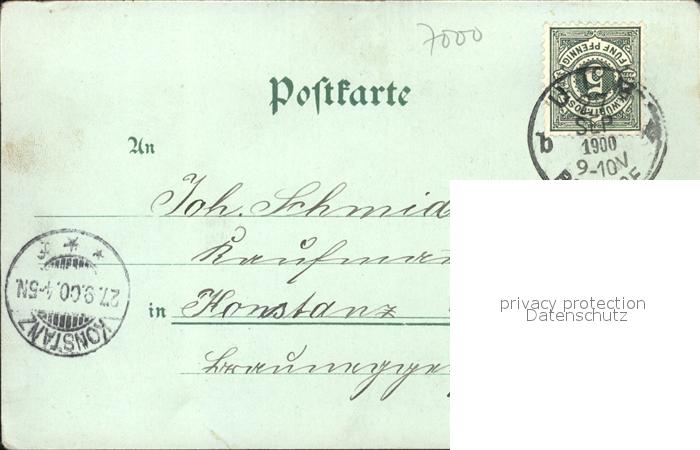 7000
Postkarte
FÜNF PFENNIG
5
K. WÜRTT. POST
SEP
1900
9-10V
b
An
Joh. Schmid
Kaufman
in Konstanz
Braunegger
KONSTANZ
27.9.00.4-5N.
privacy protection
Datenschutz